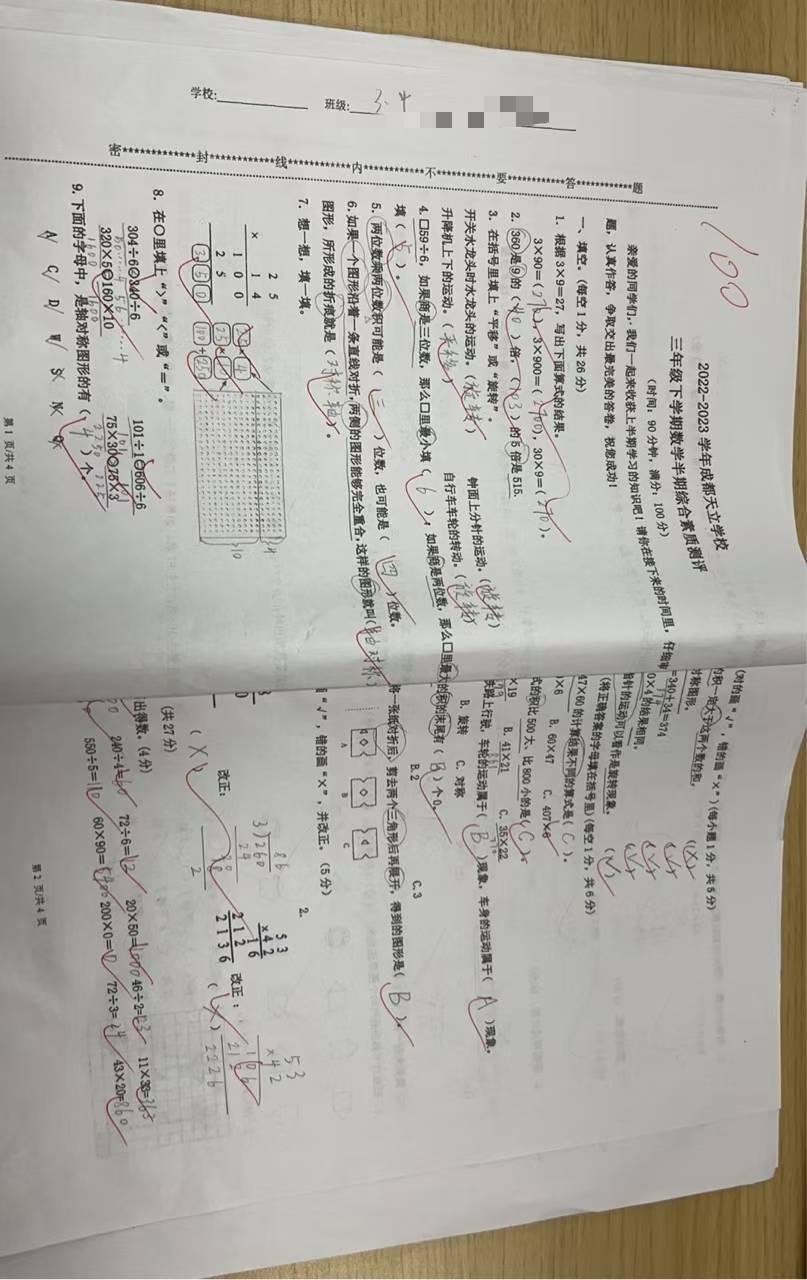 学校: 班级: 3.4
密 封 线 内 不 要 答 题
100
2022-2023 学年成都天立学校
三年级下学期数学半期综合素质测评
(时间: 90 分钟, 满分: 100 分)
亲爱的同学们, 我们一起来收获上半期学习的知识吧! 请你在接下来的时间里, 仔细审
题, 认真作答, 争取交出最完美的答卷, 祝您成功!
一、填空。(每空 1 分, 共 26 分)
1. 根据 3×9=27, 写出下面算式的结果。
3×90=(270), 3×900=(2700), 30×9=(270)。
2. 360是⑨的(40)倍, (103)的 5 倍是 515.
3. 在括号里填上“平移”或“旋转”。
开关水龙头时水龙头的运动。(旋转) 钟面上分针的运动。(旋转)
升降机上下的运动。(平移) 自行车车轮的转动。(旋转)
4. 口59÷6, 如果商是三位数, 那么口里最小填(6), 如果商是两位数, 那么口里最大
填(5)。
5. 两位数乘两位数积可能是(三)位数, 也可能是(四)位数。
6. 如果一个图形沿着一条直线对折, 两侧的图形能够完全重合, 这样的图形就叫(轴对称)
图形, 所形成的折痕就是(对称轴)。
7. 想一想, 填一填。
2 5
× 1 4
1 0 0
2 5
3 5 0
25×4
25×
100+250
4
10
8. 在〇里填上“>”“<”或“=”。
304÷6 340÷6 101÷1 606÷6
320×5 160×10 75×30 75×3
1600 1600 2250 225
9. 下面的字母中, 是轴对称图形的有(4)个。
A C D W S N
第 1 页/共 4 页
(对的画“√”, 错的画“×”)(每小题 1 分, 共 5 分)
的积一定大于这两个数的和。 (×)
对称图形。 (√)
=340+34=374 (√)
0×4 的结果相同。 (√)
指针的运动可以看作是旋转现象。 (√)
(将正确答案的字母填在括号里)(每空 1 分, 共 6 分)
47×60 的计算结果不同的算式是(C)。
×6 B. 60×47 C. 407×6
式的积比 500 大、比 800 小的是(C)。
×19 B. 41×21 C. 35×22
铁路上行驶, 车轮的运动属于(B)现象, 车身的运动属于(A)现象。
B. 旋转 C. 对称
的积的末尾有(B)个 0。
B. 2 C. 3
将一张纸对折后, 剪去两个三角形后再展开, 得到的图形是(B)。
A B C
画“√”, 错的画“×”, 并改正。(5 分)
2.
改正:
3)260
86
24
2
(×)
5 3
×4 2
1 6
2 1 2
2 1 3 6
改正:
53
×42
106
212
2226
(×)
(共 27 分)
出得数。(4 分)
240÷4=60 72÷6=12 20×50=1000 46÷2=23 11×33=363
550÷5=110 60×90=5400 200×0=0 72÷3=24 43×20=860
第 2 页/共 4 页